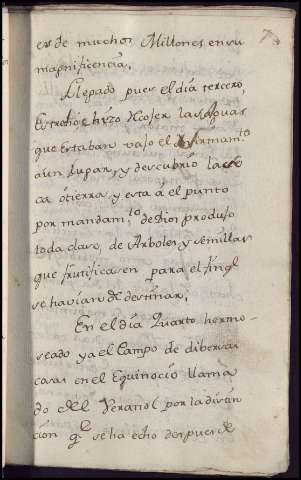 es de muchos Millones en su
magnificencia.
Llegado pues el dia tercero,
hizo Recojer las Aguas
que estaban vajo el firmam.to
a un lugar, y descubrio la
ca ó tierra, y esta á el punto
por mandam.to de Dios produjo
toda clase, de Arboles, y semillas
que frutificasen para el fin q.e
se havian de destinar.
En el dia Quarto hermo-
seado ya el Campo de dibersas
cosas en el Equinocio llama
do del Verano por la distin
cion q.e se ha echo despues de